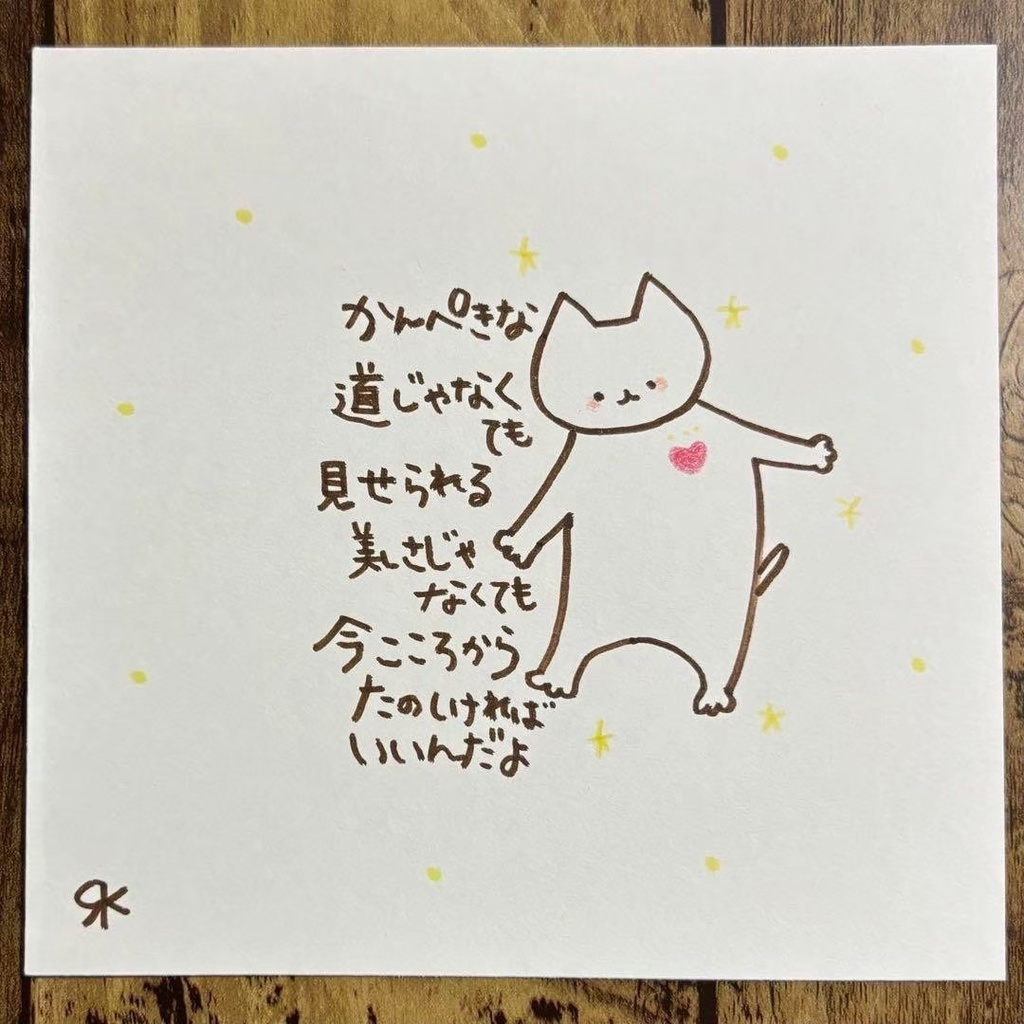 かんぺきな
道じゃなく
ても
見せられる
美しさじゃ
なくても
今こころから
たのしければ
いいんだよ
RK